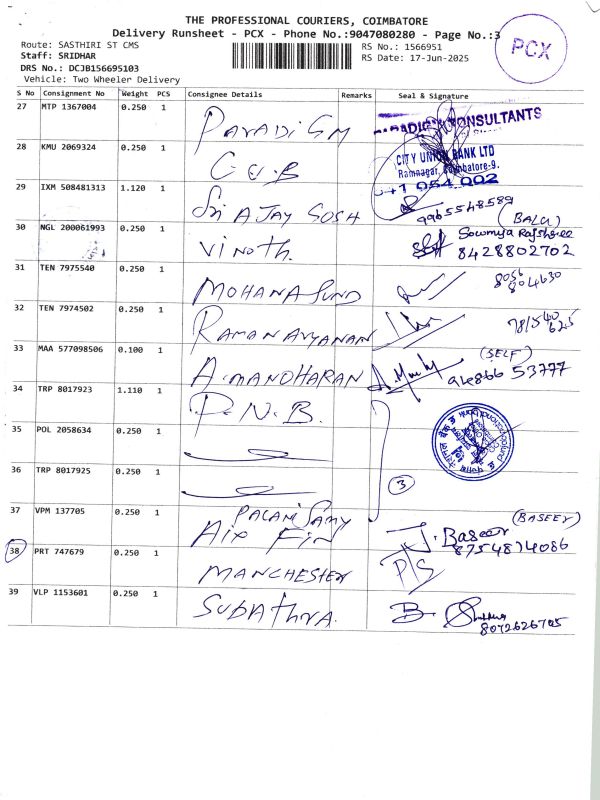 THE PROFESSIONAL COURIERS, COIMBATORE
Delivery Runsheet - PCX - Phone No.:9047080280 - Page No.:3
PCX
Route: SASTHIRI ST CMS
Staff: SRIDHAR
DRS No.: DCJB156695103
Vehicle: Two Wheeler Delivery
RS No.: 1566951
RS Date: 17-Jun-2025
S No Consignment No Weight PCS Consignee Details Remarks Seal & Signature
27 MTP 1367004 0.250 1 PARADIGM CONSULTANTS
28 KMU 2069324 0.250 1 C.U.B CITY UNION BANK LTD
Ramnagar, Coimbatore-9.
29 IXM 508481313 1.120 1 Sri AJAY GOSH 9965548589
(BALU)
30 NGL 200061993 0.250 1 Vinoth. Sowmiya Rajshree
8428802702
31 TEN 7975540 0.250 1 MOHANASUND 8056
804630
32 TEN 7974502 0.250 1 RAMANARYANAN
33 MAA 577098506 0.100 1 A.MANOHARAN (SELF)
94866 53777
34 TRP 8017923 1.110 1 P.N.B.
35 POL 2058634 0.250 1
36 TRP 8017925 0.250 1 3
37 VPM 137705 0.250 1 PALANISAMY
AIR FIN (BASEER)
J. Baseer
8754874086
38 PRT 747679 0.250 1 MANCHESTER P/S
39 VLP 1153601 0.250 1 SUBATHRA. B.
8072626705